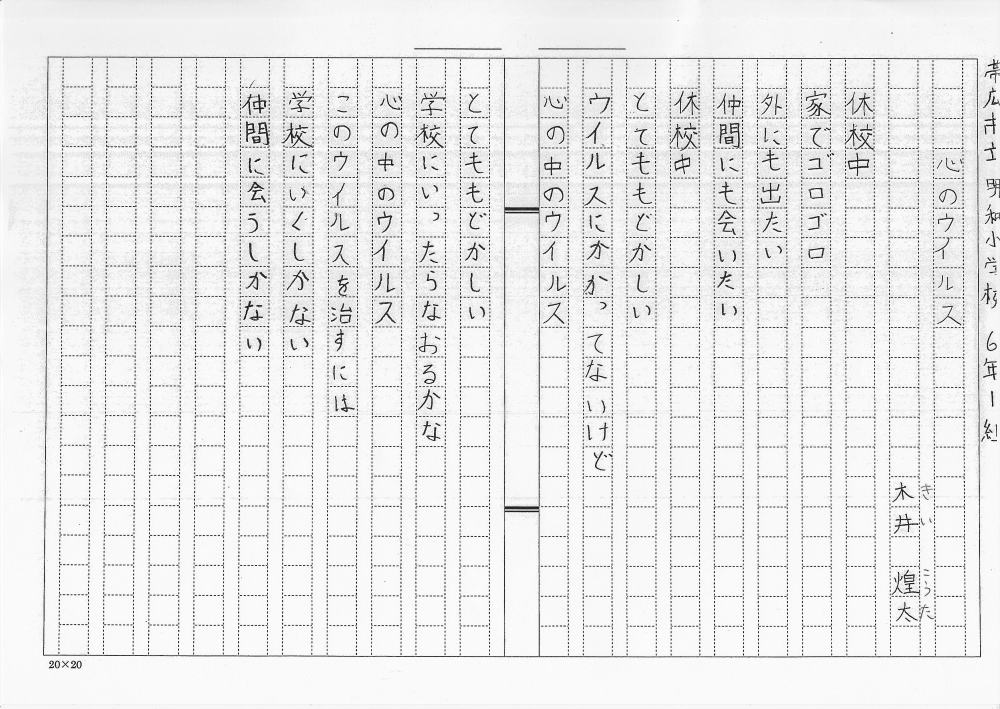 帯広市立 明和小学校 6年1組
心のウイルス
きい こうた
木井 煌太
休校中
家でゴロゴロ
外にも出たい
仲間にも会いたい
休校中
とてももどかしい
ウイルスにかかってないけど
心の中のウイルス
とてももどかしい
学校にいったらなおるかな
心の中のウイルス
このウイルスを治すには
学校にいくしかない
仲間に会うしかない
20×20